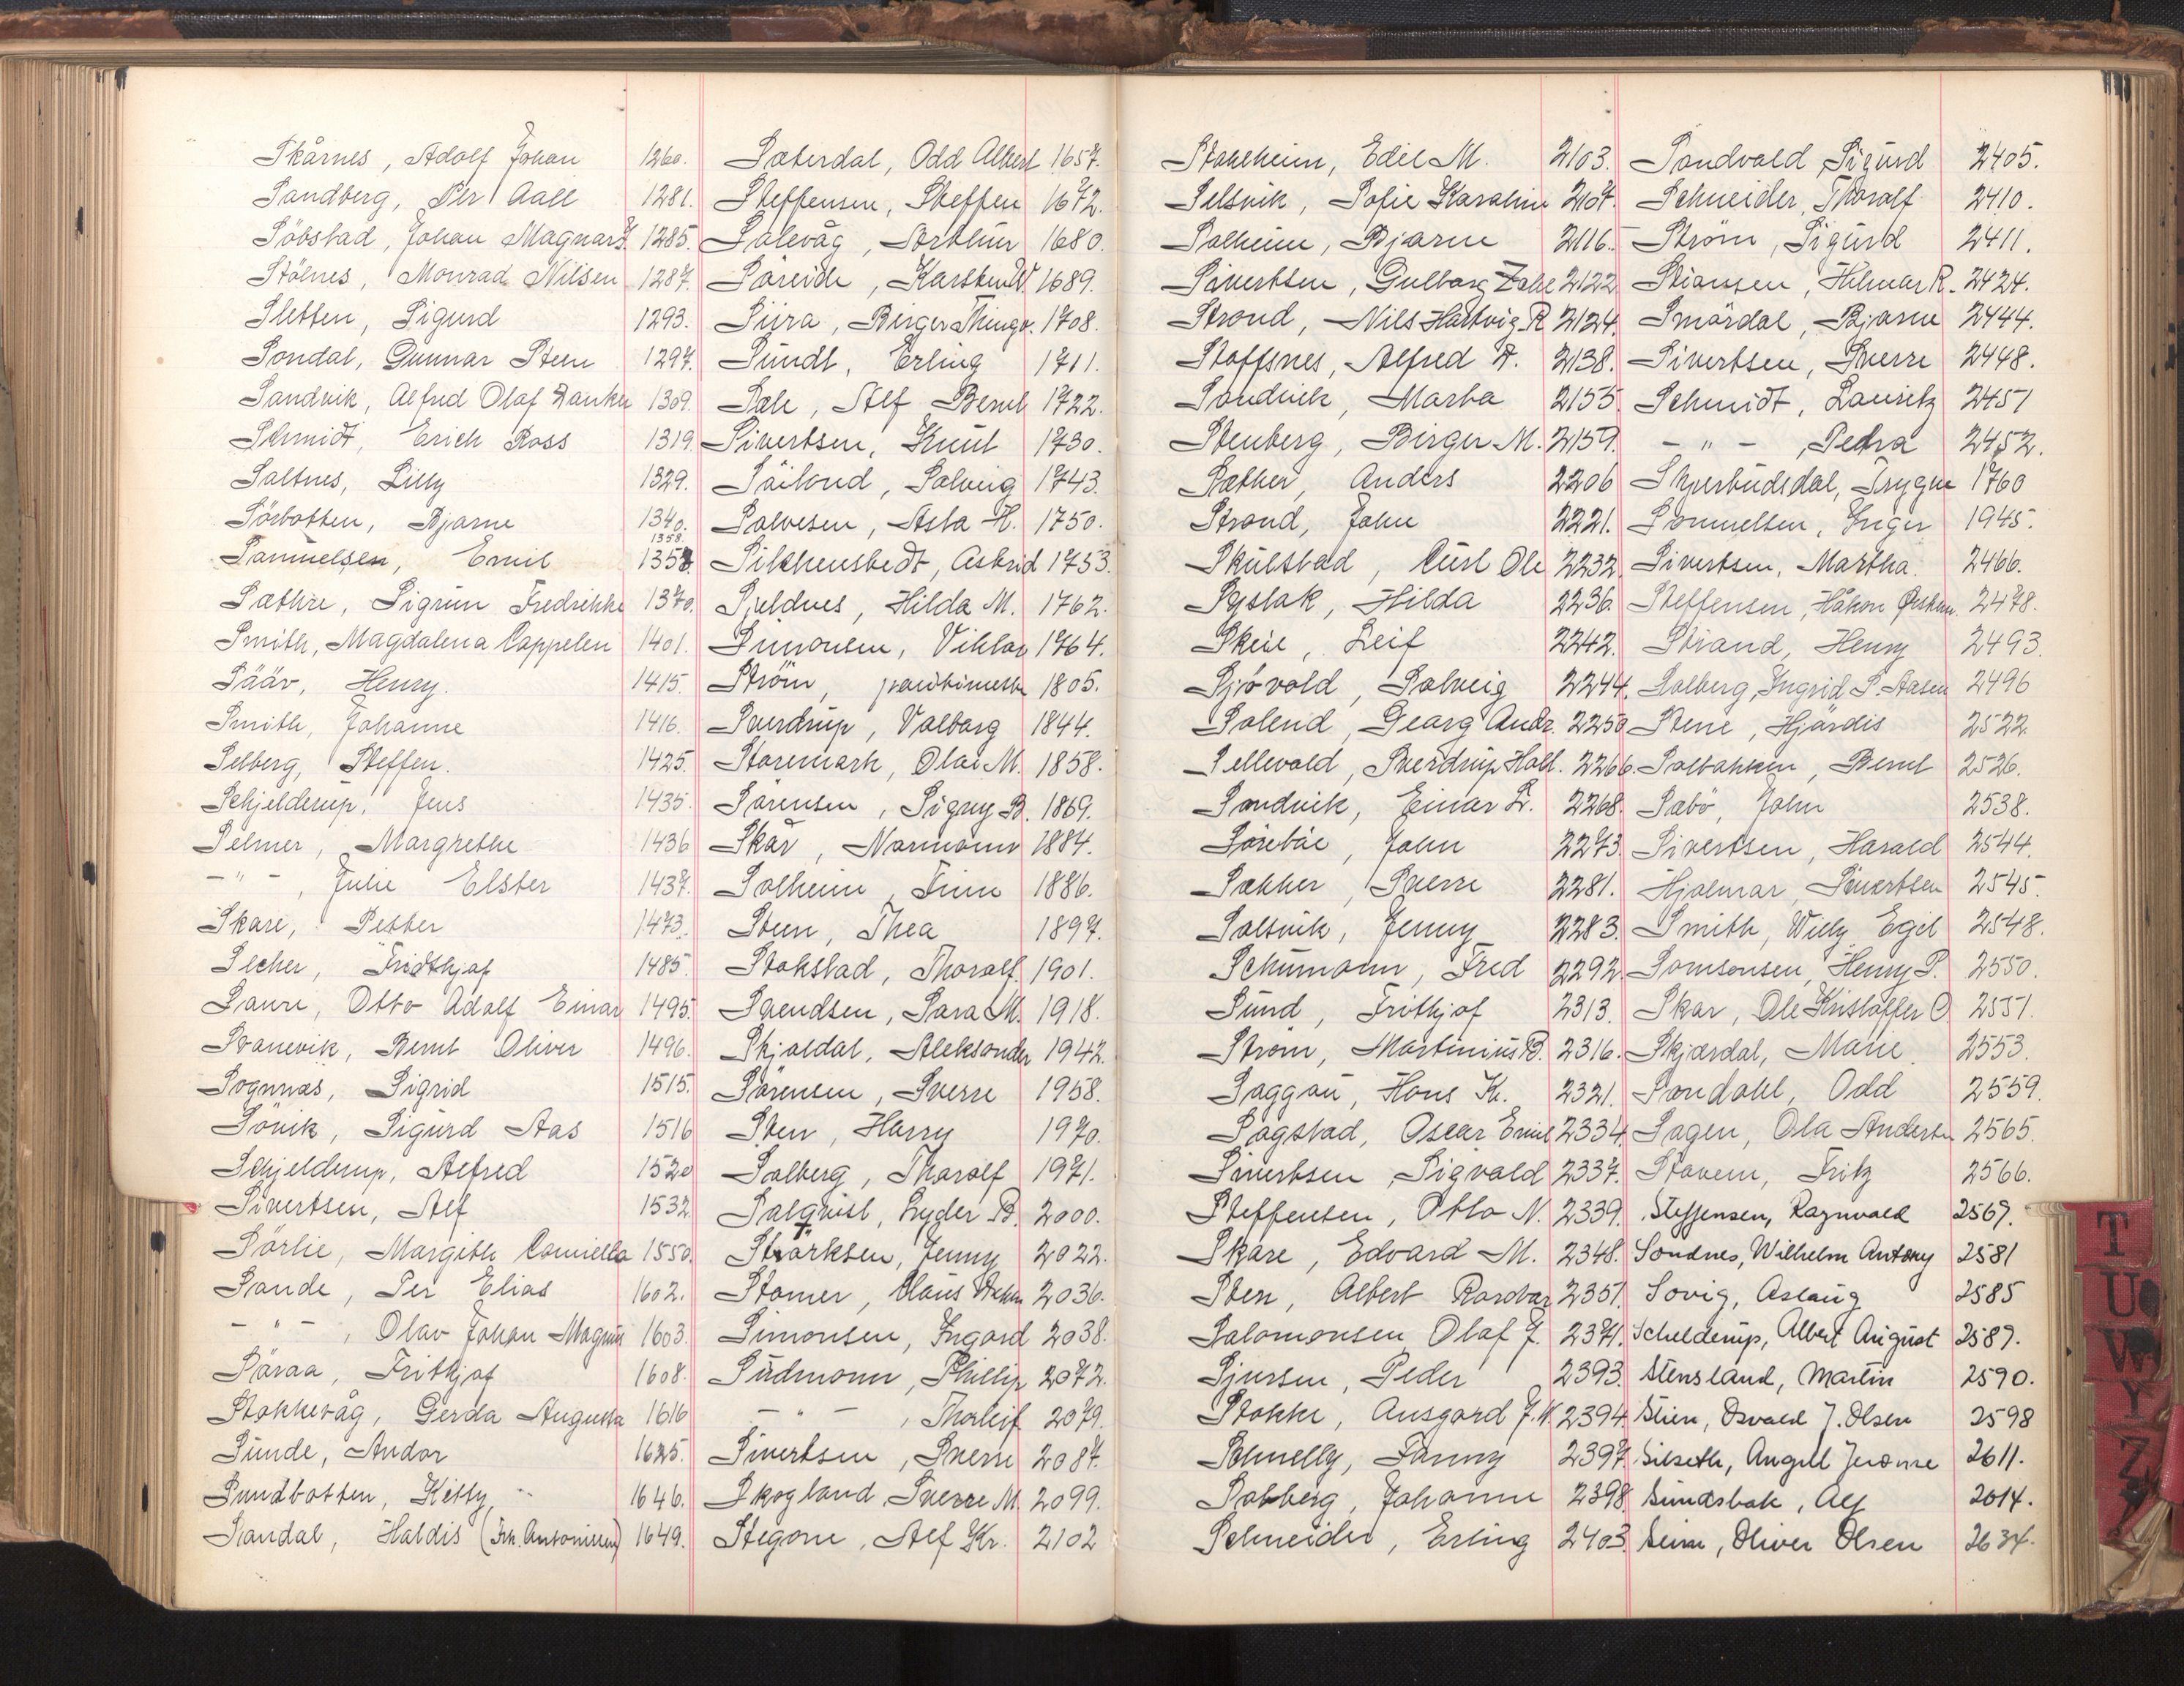 Skårnes, Adolf Johan 1260.
Sandberg, Per Aall 1281.
Söbstad, Johan Magnar 1285.
Stölnes, Monrad Nilsen 1287.
Sletten, Sigurd 1293.
Sondal, Gunnar Steen 1297.
Sandvik, Alfred Olaf Danker 1309.
Schmidt, Erich Ross 1319.
Saltnes, Lilly 1329.
Sörbotten, Bjarne 1340.
Samuelsen, Emil 1358.
Sæthre, Sigrun Fredrikke 1370.
Smith, Magdalena Cappelen 1401.
Sääv, Henry. 1415.
Smith, Johanne 1416.
Selberg, Steffen. 1425.
Schjelderup, Jens 1435.
Selmer, Margrethe 1436
- " -, Julie Elster 1437.
Skare, Petter 1473.
Secher, Fridthjof 1485.
Saure, Otto Adolf Einar 1495.
Svanevik, Bernt Oliver 1496.
Sognnæs, Sigrid 1515.
Sönik, Sigurd Aas 1516
Schjelderup, Alfred 1520
Sivertsen, Alf 1532.
Sörlie, Margith Camilla 1550.
Sande, Per Elias 1602.
- " -, Olav Johan Magnus 1603.
Säraa, Frithjof 1608.
Stokkevåg, Gerda Augusta 1616
Sunde, Andor 1625.
Sundbotten, Kitty 1646.
Sandal, Haldis (Frk. Antonisen) 1649.
Sæterdal, Odd Albert 1657.
Steffensen, Steffen 1672.
Solevåg, Arthur 1680.
Søreide, Karsten W. 1689.
Siira, Birger Thingv. 1708.
Sundt, Erling 1711.
Sale, Alf Bernt 1722.
Sivertsen, Knut 1730.
Säiland, Solveig 1743.
Salvesen, Asta H. 1750.
Silchenstedt, Astrid 1753.
Sjeldnes, Hilda M. 1762.
Simonsen, Viktor 1764.
Ström, 1805.
Sverdrup, Valborg 1844.
Storemark, Olai M. 1858.
Sörensen, Signy B. 1869.
Skar, Normann 1884.
Solheim, Finn 1886.
Steen, Thea 1897.
Stokstad, Thoralf 1901.
Svendsen, Sara M. 1918.
Skjoldal, Aleksander 1942.
Sörensen, Sverre 1958.
Sten, Harry 1970.
Solberg, Thoralf 1971.
Salqvist, Lyder B. 2000.
Störksen, Jenny 2022.
Stamer, Claus 2036.
Simonsen, Ingard 2038.
Südmann, Phillip 2072.
- " -, Thorleif 2079.
Sivertsen, Sverre 2087.
Skogland, Sverre M. 2099.
Stegane, Alf Kr. 2102
Stahlheim, Edel M. 2103.
Selsvik, Sofie Karoline 2107.
Solheim, Bjarne 2116.
Sivertsen, Gulborg 2122
Strand, Nils Hartvig R 2124.
Stoffsnes, Alfred A. 2138.
Sandvik, Marta 2155.
Stenberg, Birger M. 2159.
Sæther, Anders 2206
Strand, John 2221.
Skulstad, Curl Ole 2232.
Systak, Hilda 2236.
Skeie, Leif 2242.
Sjövold, Solveig 2244.
Solend, Georg Andr. 2250
Sellevold, Sverdrup Hald. 2266.
Sandvik, Einar Lr. 2268.
Söreböe, John 2273.
Sekker, Sverre 2281.
Soltvik, Jenny 2283.
Schumann, Fred 2292.
Sund, Frithjof 2313.
Ström, Martinius B. 2316.
Saggau, Hans K. 2321.
Sagstad, Oscar Emil 2334.
Sivertsen, Sigvald 2337.
Steffensen, Otto N. 2339.
Skare, Edvard M. 2348.
Sten, Albert 2351.
Salomonsen Olaf J. 2371.
Sjursen, Peder 2393.
Stokke, Ansgard J. K. 2394.
Schnelly, Fanny 2397.
Solberg, Johanne 2398
Schneider, Erling 2403.
Sandvold Sigurd 2405.
Schneider, Thoralf 2410.
Ström, Sigurd 2411.
Stiansen, Hilmar R. 2424.
Smördal, Bjarne 2444.
Sivertsen, Sverre 2448.
Schmidt, Lauritz 2451
- " -, Petra 2452.
Skjerbudsdal, Trygve 1760
Samuelsen, Inger 1945.
Sivertsen, Martha. 2466.
Steffensen, Håkon 2478.
Strand, Henry 2493.
Solberg, Ingrid S. Aasen 2496
Stene, Hjördis 2522.
Solbakken, Bernt 2526.
Sæbö, John 2538.
Sivertsen, Harald 2544.
Hjalmar Sivertsen 2545.
Smith, Willy Egil 2548.
Samsonsen, Henry P. 2550.
Skar, Ole Kristoffer O. 2551.
Skjærdal, Marie 2553.
Søndahl, Odd 2559.
Sagen, Ola Andersen 2565.
Stavem, Fritz 2566.
Steffensen, Ragnvald 2567.
Sondnes, Wilhelm Antony 2581
Sovig, Aslaug 2585
Schelderup, Albert August 2589.
Stensland, Martin 2590.
Stien, Osvald J. Olsen 2598
Silseth, Angell Jerome 2611.
Sundsbak, Alf 2614.
Seim, Oliver Olsen 2634.
T
U
W
Y
Z